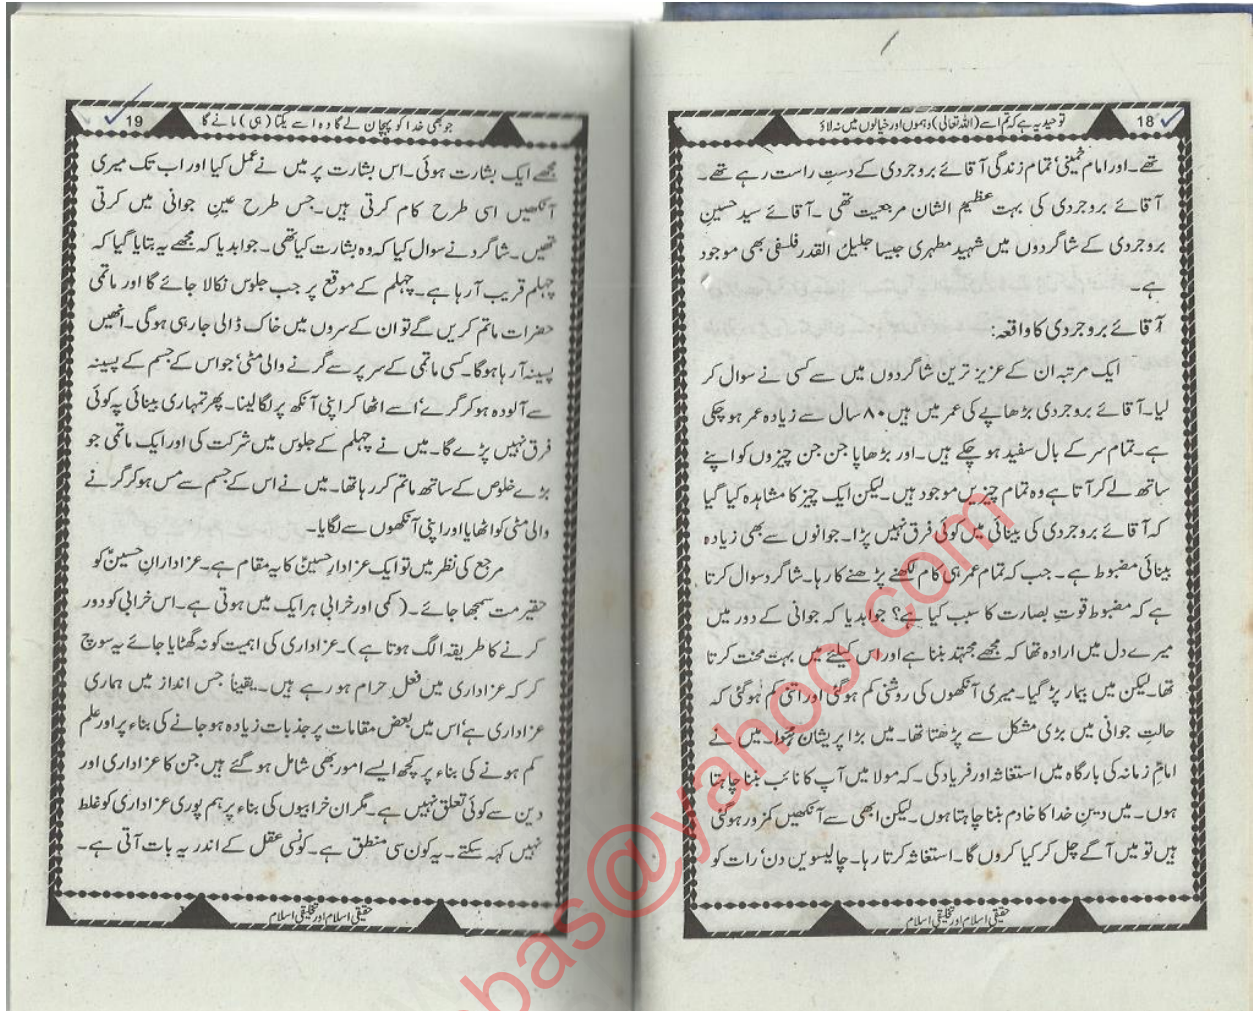 18
توحید یہ ہے کہ تم اسے (اللہ تعالیٰ) وہموں اور خیالوں میں نہ لاؤ
تھے۔ اور امام خمینیؒ تمام زندگی آقائے بروجردی کے دستِ راست رہے تھے۔
آقائے بروجردی کی بہت عظیم الشان مرجعیت تھی۔ آقائے سید حسین
بروجردی کے شاگردوں میں شہید مطہری جیسا جلیل القدر فلسفی بھی موجود
ہے۔
آقائے بروجردی کا واقعہ:
ایک مرتبہ ان کے عزیز ترین شاگردوں میں سے کسی نے سوال کر
لیا۔ آقائے بروجردی بڑھاپے کی عمر میں ہیں ۸۰ سال سے زیادہ عمر ہو چکی
ہے۔ تمام سر کے بال سفید ہو چکے ہیں۔ اور بڑھاپا جن جن چیزوں کو اپنے
ساتھ لے کر آتا ہے وہ تمام چیزیں موجود ہیں۔ لیکن ایک چیز کا مشاہدہ کیا گیا
کہ آقائے بروجردی کی بینائی میں کوئی فرق نہیں پڑا۔ جوانوں سے بھی زیادہ
بینائی مضبوط ہے۔ جب کہ تمام عمر ہی کام لکھنے پڑھنے کا رہا۔ شاگرد سوال کرتا
ہے کہ مضبوط قوتِ بصارت کا سبب کیا ہے؟ جواب دیا کہ جوانی کے دور میں
میرے دل میں ارادہ تھا کہ مجھے مجتہد بننا ہے اور اس کیلئے میں بہت محنت کرتا
تھا۔ لیکن میں بیمار پڑ گیا۔ میری آنکھوں کی روشنی کم ہوگئی اور اتنی کم ہوگئی کہ
حالتِ جوانی میں بڑی مشکل سے پڑھتا تھا۔ میں بڑا پریشان ہوا۔ میں نے
امامِ زمانہ کی بارگاہ میں استغاثہ اور فریاد کی۔ کہ مولا میں آپ کا نائب بننا چاہتا
ہوں۔ میں دینِ خدا کا خادم بننا چاہتا ہوں۔ لیکن ابھی سے آنکھیں کمزور ہوگئی
ہیں تو میں آگے چل کر کیا کروں گا۔ استغاثہ کرتا رہا۔ چالیسویں دن، رات کو
حقیقی اسلام اور تخلیقی اسلام
جو بھی خدا کو پہچان لے گا وہ اسے یکتا (ہی) مانے گا
19
مجھے ایک بشارت ہوئی۔ اس بشارت پر میں نے عمل کیا اور اب تک میری
آنکھیں اسی طرح کام کرتی ہیں۔ جس طرح عینِ جوانی میں کرتی
تھیں۔ شاگرد نے سوال کیا کہ وہ بشارت کیا تھی۔ جواب دیا کہ مجھے یہ بتایا گیا کہ
چہلم قریب آ رہا ہے۔ چہلم کے موقع پر جب جلوس نکالا جائے گا اور ماتمی
حضرات ماتم کریں گے تو ان کے سروں میں خاک ڈالی جا رہی ہوگی۔ انھیں
پسینہ آ رہا ہوگا۔ کسی ماتمی کے سر پر سے گرنے والی مٹی، جو اس کے جسم کے پسینہ
سے آلودہ ہو کر گرے، اسے اٹھا کر اپنی آنکھ پر لگا لینا۔ پھر تمہاری بینائی پہ کوئی
فرق نہیں پڑے گا۔ میں نے چہلم کے جلوس میں شرکت کی اور ایک ماتمی جو
بڑے خلوص کے ساتھ ماتم کر رہا تھا۔ میں نے اس کے جسم سے مس ہو کر گرنے
والی مٹی کو اٹھایا اور اپنی آنکھوں سے لگایا۔
مرجع کی نظر میں تو ایک عزادارِ حسینؑ کا یہ مقام ہے۔ عزادارانِ حسینؑ کو
حقیر مت سمجھا جائے۔ (کمی اور خرابی ہر ایک میں ہوتی ہے۔ اس خرابی کو دور
کرنے کا طریقہ الگ ہوتا ہے)۔ عزاداری کی اہمیت کو نہ گھٹایا جائے یہ سوچ
کر کہ عزاداری میں فعلِ حرام ہو رہے ہیں۔ یقیناً جس انداز میں ہماری
عزاداری ہے، اس میں بعض مقامات پر جذبات زیادہ ہو جانے کی بناء پر اور علم
کم ہونے کی بناء پر کچھ ایسے امور بھی شامل ہو گئے ہیں جن کا عزاداری اور
دین سے کوئی تعلق نہیں ہے۔ مگر ان خرابیوں کی بناء پر ہم پوری عزاداری کو غلط
نہیں کہہ سکتے۔ یہ کون سی منطق ہے۔ کونسی عقل کے اندر یہ بات آتی ہے۔
حقیقی اسلام اور تخلیقی اسلام
bas@yahoo.com